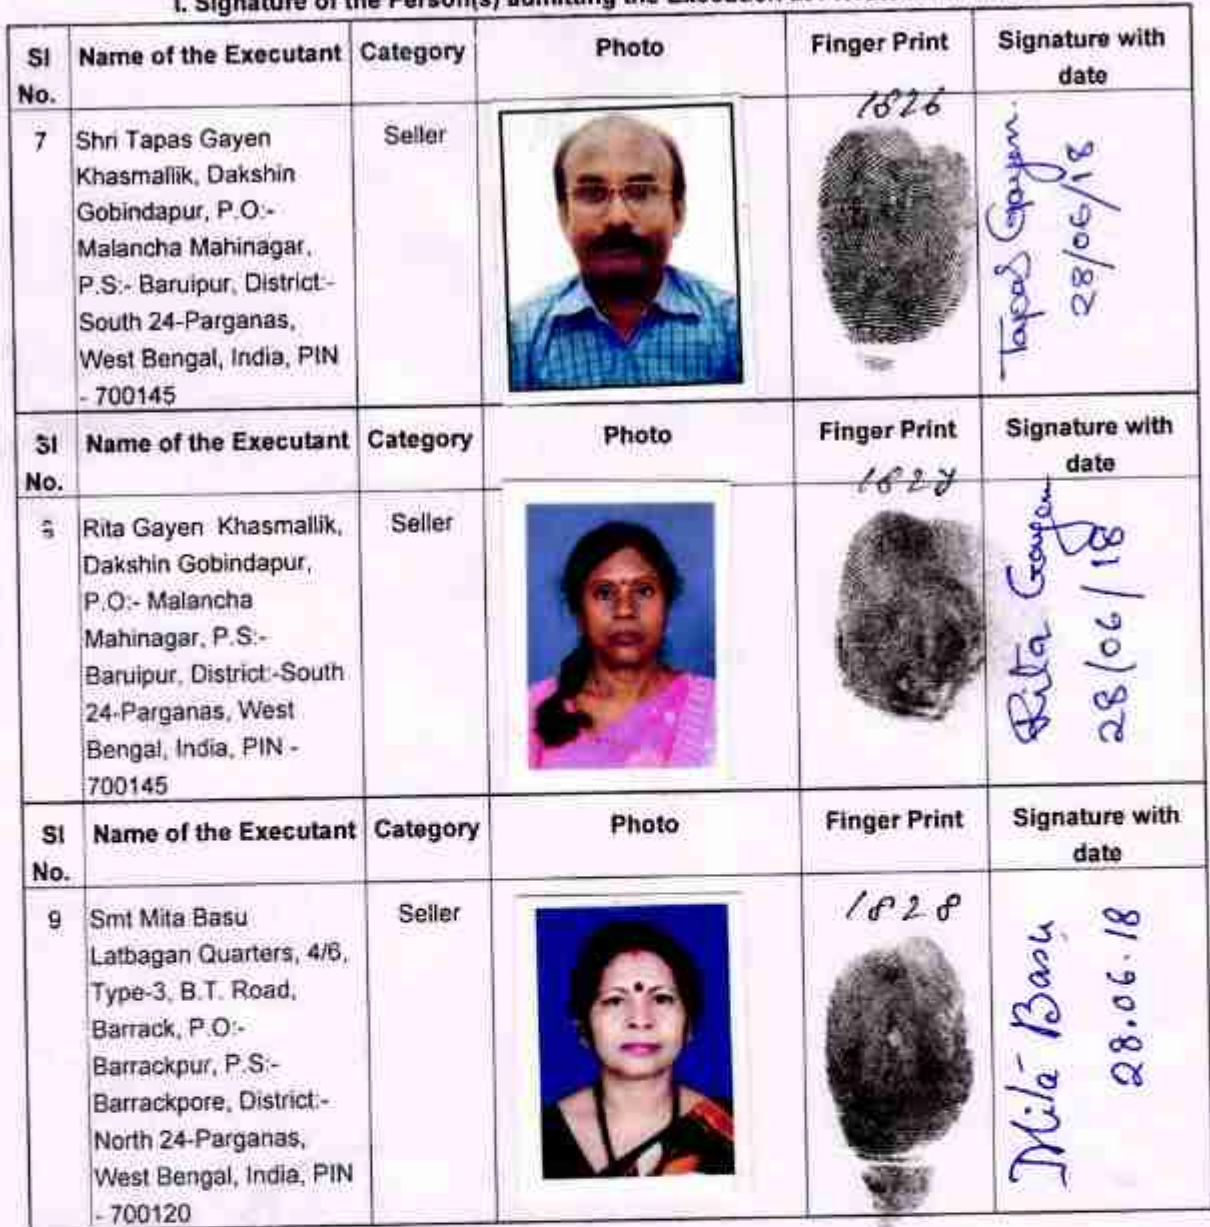 I. Signature of the Person(s) admitting the Execution
Sl No. Name of the Executant Category Photo Finger Print Signature with date
7 Shri Tapas Gayen Seller 1826
Khasmallik, Dakshin
Gobindapur, P.O:-
Malancha Mahinagar,
P.S:- Baruipur, District:-
South 24-Parganas,
West Bengal, India, PIN
- 700145
Tapas Gayen.
28/06/18
Sl No. Name of the Executant Category Photo Finger Print Signature with date
Rita Gayen Khasmallik, Seller
Dakshin Gobindapur,
P.O:- Malancha
Mahinagar, P.S:-
Baruipur, District:-South
24-Parganas, West
Bengal, India, PIN -
700145
1827
Rita Gayen
28/06/18
Sl No. Name of the Executant Category Photo Finger Print Signature with date
9 Smt Mita Basu Seller 1828
Latbagan Quarters, 4/6,
Type-3, B.T. Road,
Barrack, P.O:-
Barrackpur, P.S:-
Barrackpore, District:-
North 24-Parganas,
West Bengal, India, PIN
- 700120
Mita Basu
28.06.18